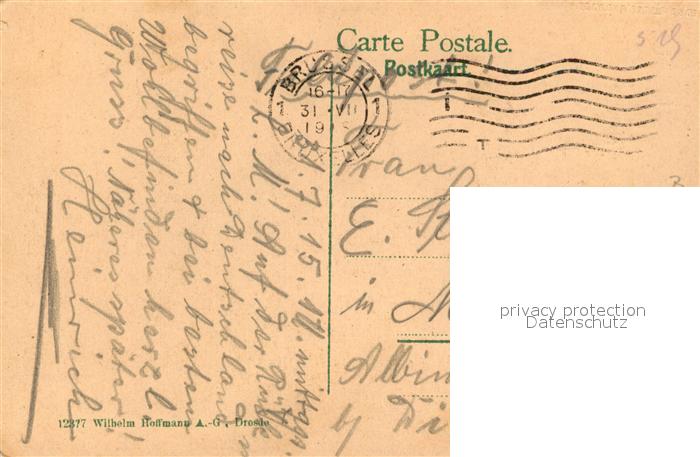 Carte Postale.
Postkaart.
Feldpost!
BRUSSEL
16-17
31 VII
19
BRUXELLES
1 1
T
7. 15. 11
L. M.! Auf der Rück-
reise nach Deutschland
begriffen & bei bestem
Wohlbefinden herzl.
Gruss! Näheres später!
Heinrich
Frau
E.
in
Albin
b/
12377 Wilhelm Hoffmann A.-G., Dresde
privacy protection
Datenschutz